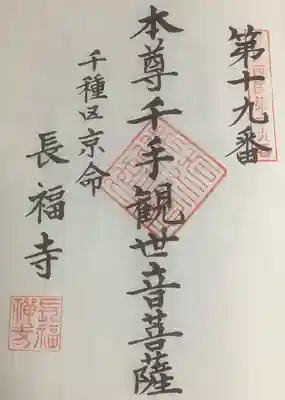 第十九番
本尊千手観世音菩薩
千種区京命
長福寺
長福
禅寺